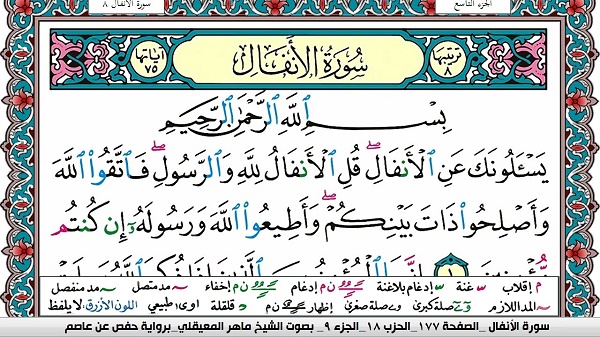 الجزء التاسع سورة الأنفال ٨
ترتيبها ٨ سُورَةُ الأَنفَالِ آياتها ٧٥
بِسْمِ اللَّهِ الرَّحْمَٰنِ الرَّحِيمِ
يَسْـَٔلُونَكَ عَنِ الْأَنفَالِ ۖ قُلِ الْأَنفَالُ لِلَّهِ وَالرَّسُولِ ۖ فَاتَّقُوا اللَّهَ
وَأَصْلِحُوا ذَاتَ بَيْنِكُمْ ۖ وَأَطِيعُوا اللَّهَ وَرَسُولَهُ إِن كُنتُم
م إقلاب غنة إدغام بلاغنة ن م إدغام ن م إخفاء مد متصل مد منفصل
المد اللازم صلة كبرى وصلة صغرى إظهار ن م قلقلة اوى طبيعي اللون الأزرق لا يلفظ
سورة الأنفال _الصفحة ١٧٧_ الحزب ١٨_ الجزء ٩_ بصوت الشيخ ماهر المعيقلي_ برواية حفص عن عاصم